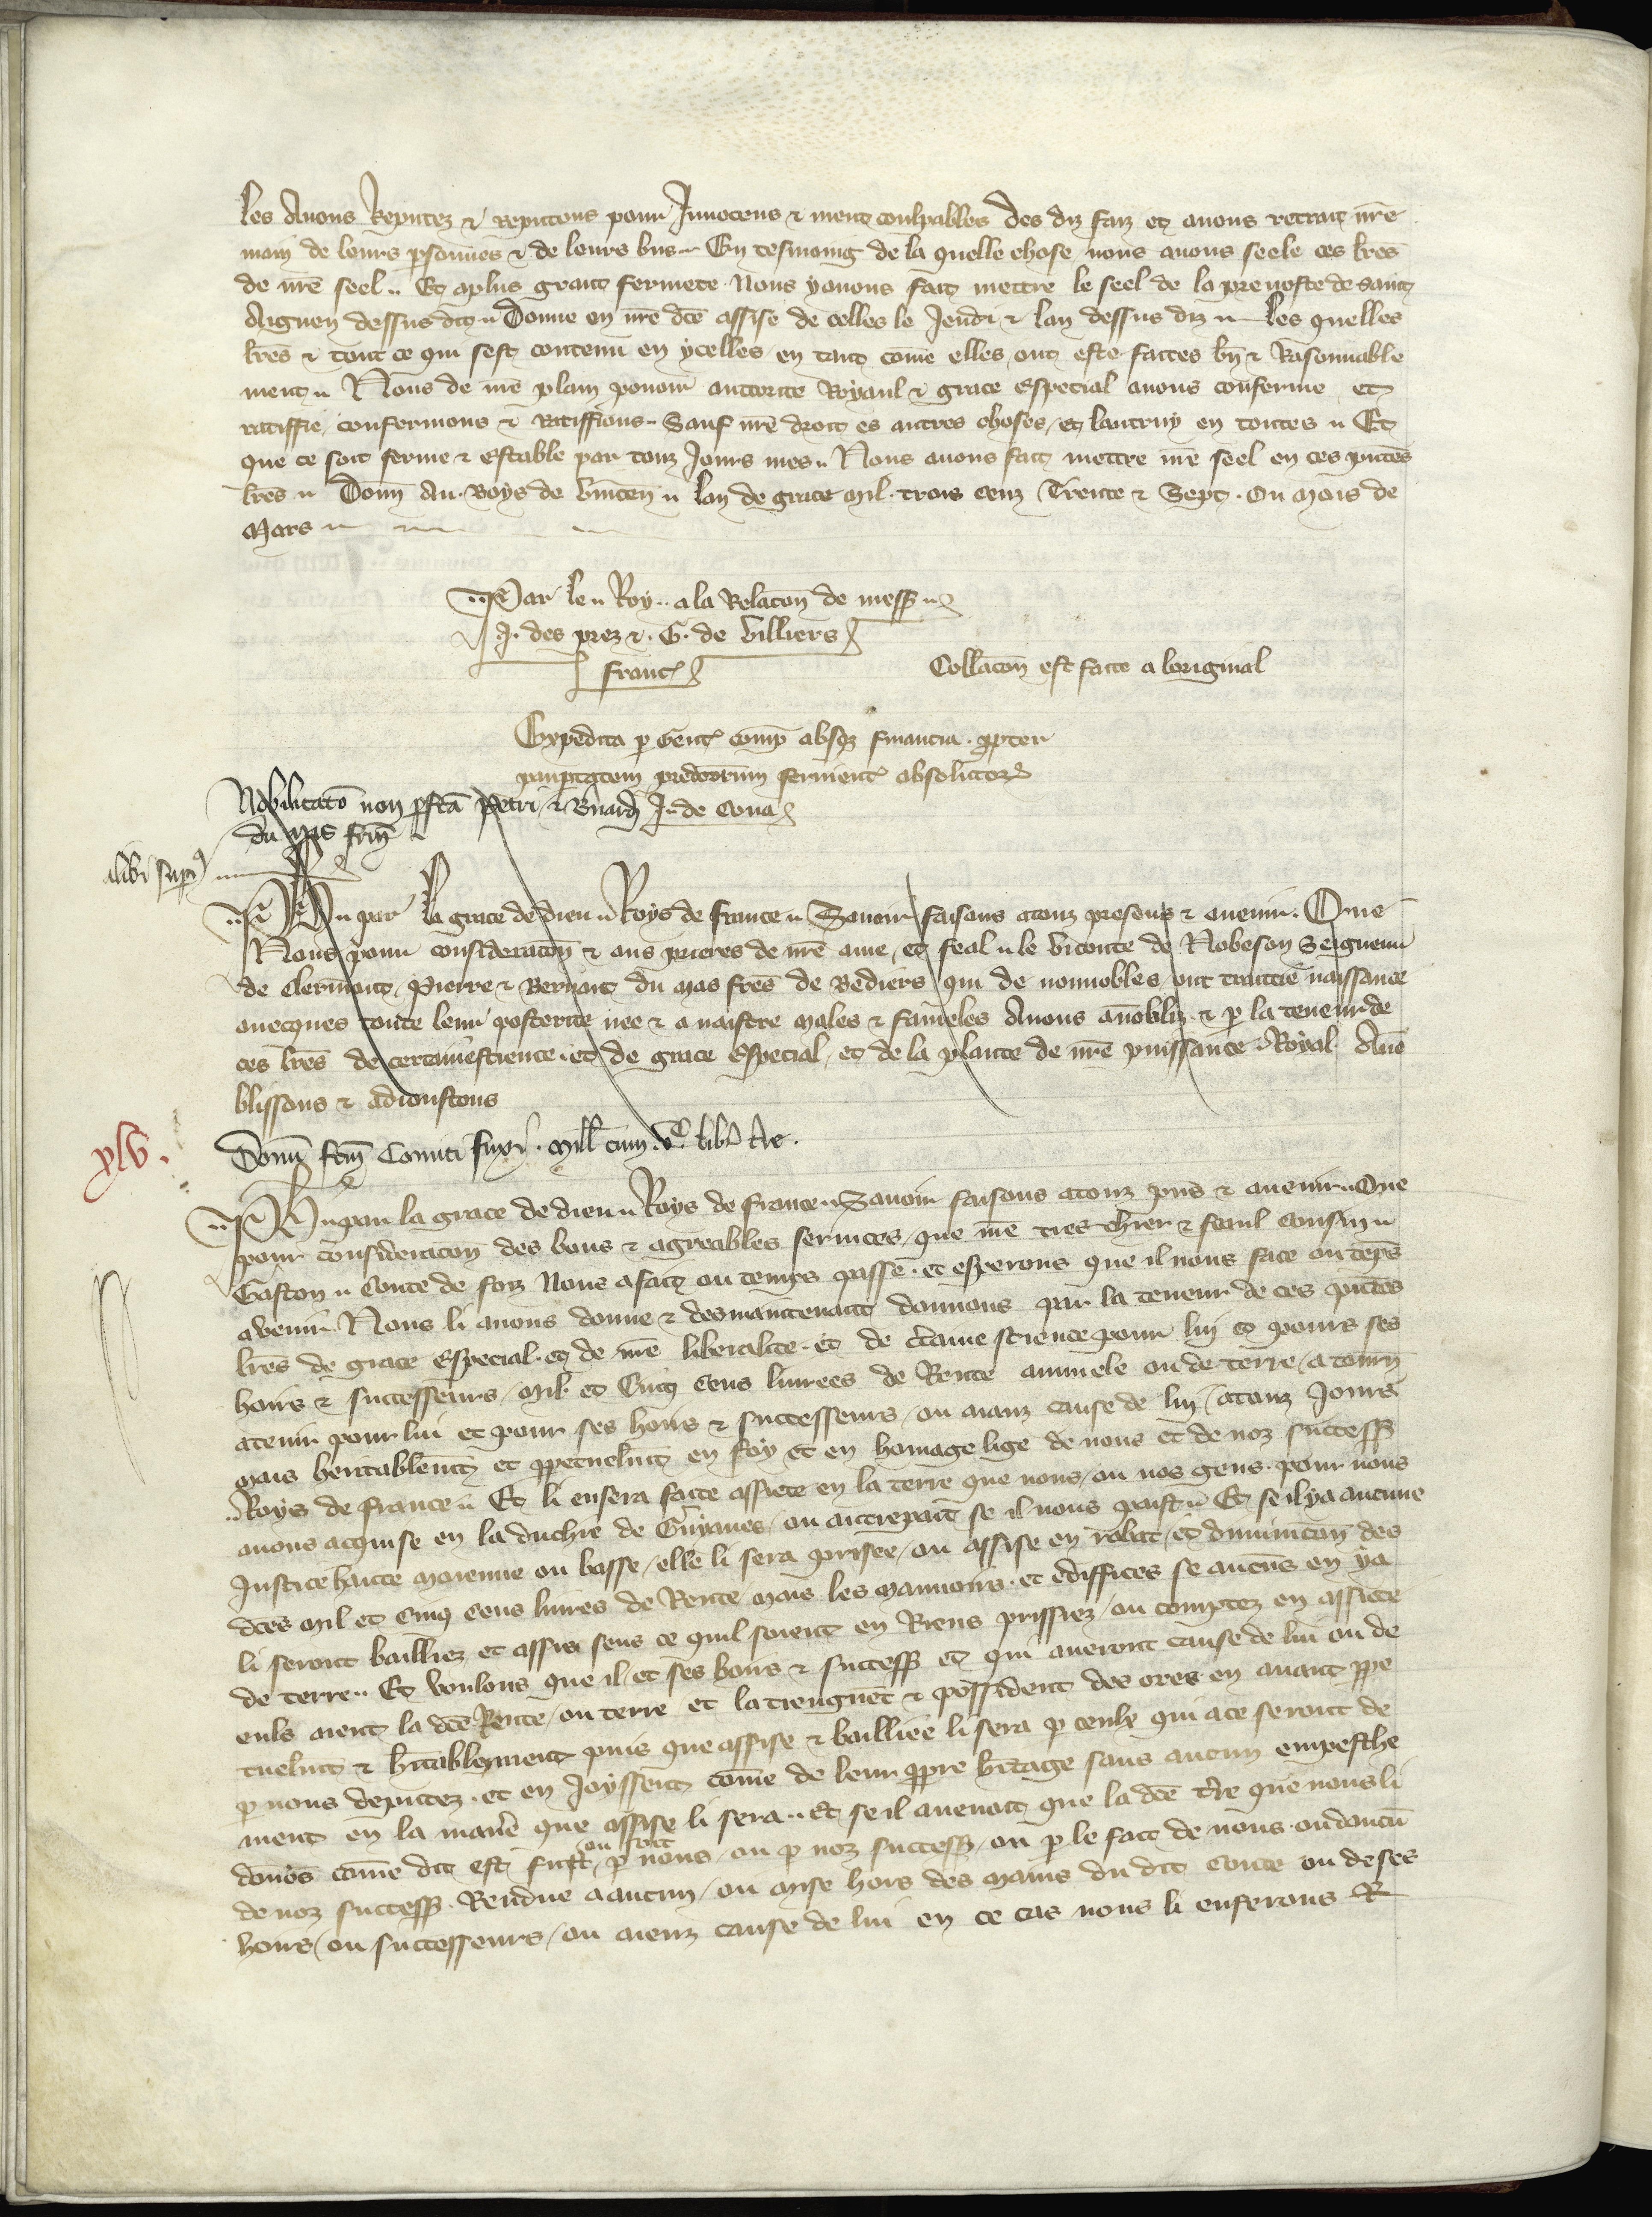 les Avons Reputez & reputons pour Innocens & ment coulpables des diz faiz et avons retrait nre
main de leurs psonnes & de leurs bns. En tesmoing de la quelle chose nous avons seele ces lres
de nre seel. Et a plus grant fermete Nous y avons fait mettre le seel de la prevoste de Saint
Aignen dessus dit. Donne en nre dte assise de Celles le Jeudi & lan dessus diz. Les quelles
lres & tout ce qui sest contenu en ycelles en tant come elles ont este faites bn & Raisonnable
ment. Nous de nre plain povoir auttorite Royaul & grace Especial avons conferme et
ratiffie confermons & Ratiffions. Sauf nre droit es autres choses et lautruy en toutes. Et
que ce soit ferme & estable par touz Jours mes. Nous avons fait mettre nre seel en ces pntes
lres. Donn Au Boys de Vincen. lan de grace Mil trois cenz Trente & Sept. Ou mois de
Mars
Par le Roy a la Relacon de mess
J. des prez & G. de Villiers
Franc
Collacon est faite a loriginal
Expedita p gent comp absqz financia ppter
paupertatem predictorum servient absolutorz
Nobilitatio non pfcta Petri & Bnardi
du Mas frm
alibi supius
Ph par la grace de dieu Roys de France. Savoir faisons a touz presens & avenir. Que
Nous pour consideracon & aus prieres de nre ame et feal le Viconte de Nobeson Seigneur
de Clermont, Pierre & Bernart du mas fres de Bediers qui de nonnobles ont traittie naissance
avecques toute leur posterite nee & a naistre males & fameles Avons anobliz & p la teneur de
ces lres de certaine science et de grace Especial et de la plante de nre puissance Royal Ano
blissons & adioustons
xlv.
Donu fcm Comiti fuxi Mill cum vc libr tre.
Ph par la grace de dieu Roys de France. Savoir faisons a touz pns & avenir. Que
pour consideracon des bons & agreables services que nre tres chier & feaul cousin
Gaston Conte de foiz Nous a fait ou temps passe et esperons que il nous face ou teps
avenir. Nous li avons donne & des maintenant donnons par la teneur de ces pntes
lres de grace Especial et de nre liberalite et de ctaine science pour lui et pours ses
hoirs & successeurs, Mil et Cinq Cens livrees de Rente annuele ou de terre a tourn
a tenir pour lui et pour ses hoirs & successeurs ou aianz cause de lui a touz Jours
mais heritablemt et ppetuelmt en foy et en homage lige de nous et de noz success
Roys de France. Et li en sera faite assiete en la terre que nous ou nos gens pour nous
avons acquise en la duchie de Guyanes ou autrepart se il nous plaist. Et se il ya aucune
Justice haute moienne ou basse elle li sera prisee ou assise en rabat et diminucon des
dtes Mil et Cinq Cens livres de Rente mais les mannoirs et ediffices se aucuns en ya
li seront bailliez et assis sens ce quil soient en Riens prissiez ou comptez en assiete
de terre. Et voulons que il et ses hoirs & success et qui averont cause de lui ou de
euls aient la dte Rente ou terre et la tiengnet & possident des ores en avant ppe
tuelmt & hitablement puis que assise & bailliee li sera p ceulx qui a ce seront de
p nous deputez et en Joyssent come de leur ppre hitage sans aucun empesche
ment en la manere que assise li sera. Et se il avenoit que la dte tre que nous li
donos come dit est fust ou soit p nous ou p noz success ou p le fait de nous ou daucun
de noz success Rendue a aucun ou mise hors des mains du dit Conte ou de ses
hoirs ou successeurs ou aienz cause de lui en ce cas nous li enferons R